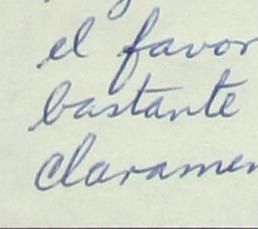 el favor
bastante
claramen